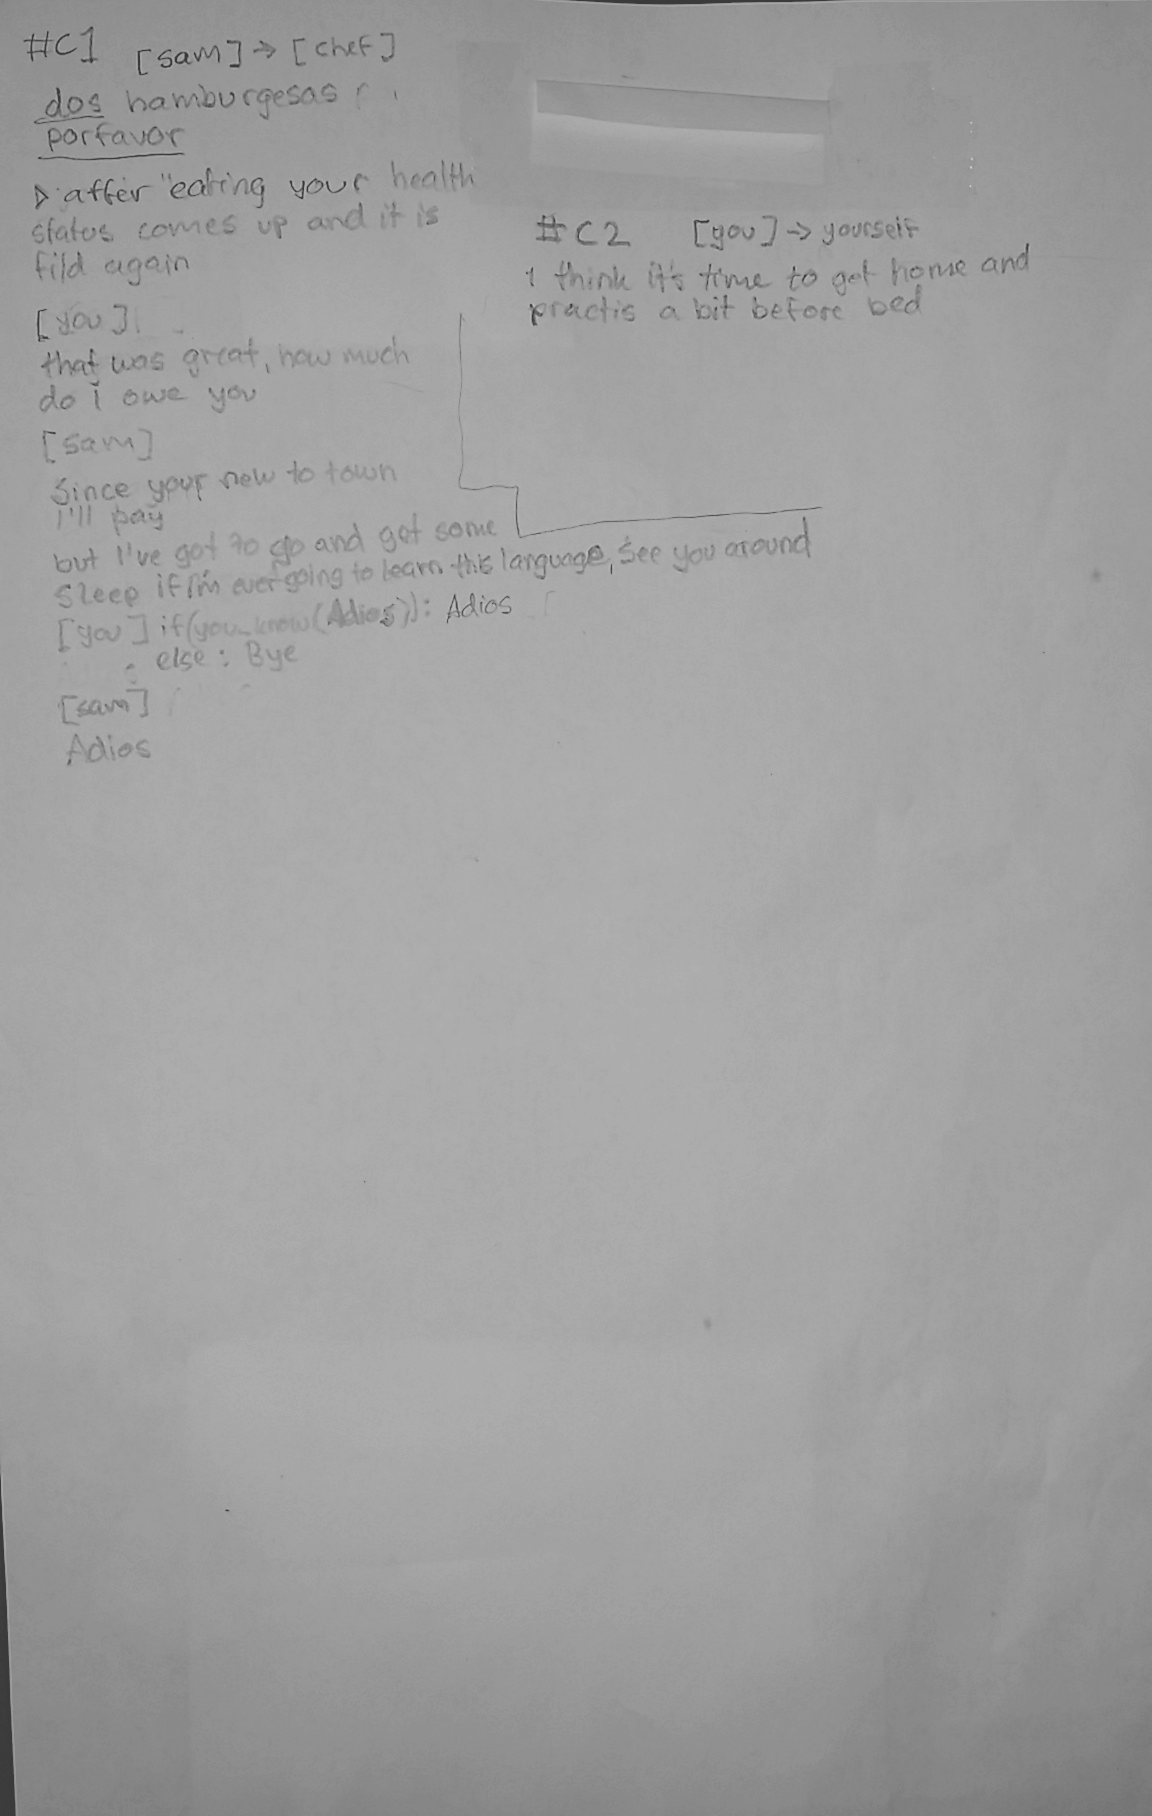 #C1 [sam] → [chef]
dos hamburgesas
porfavor
▷ after eating your health
status comes up and it is
fild again
[you]
that was great, how much
do i owe you
[sam]
Since your new to town
I'll pay
but I've got to go and get some
Sleep if I'm ever going to learn this language, See you around
[you] if(you_know(Adios)): Adios
else : Bye
[sam]
Adios
#C2 [you] → yourself
I think it's time to get home and
practis a bit before bed